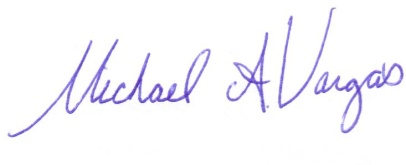 Michael A. Vargas